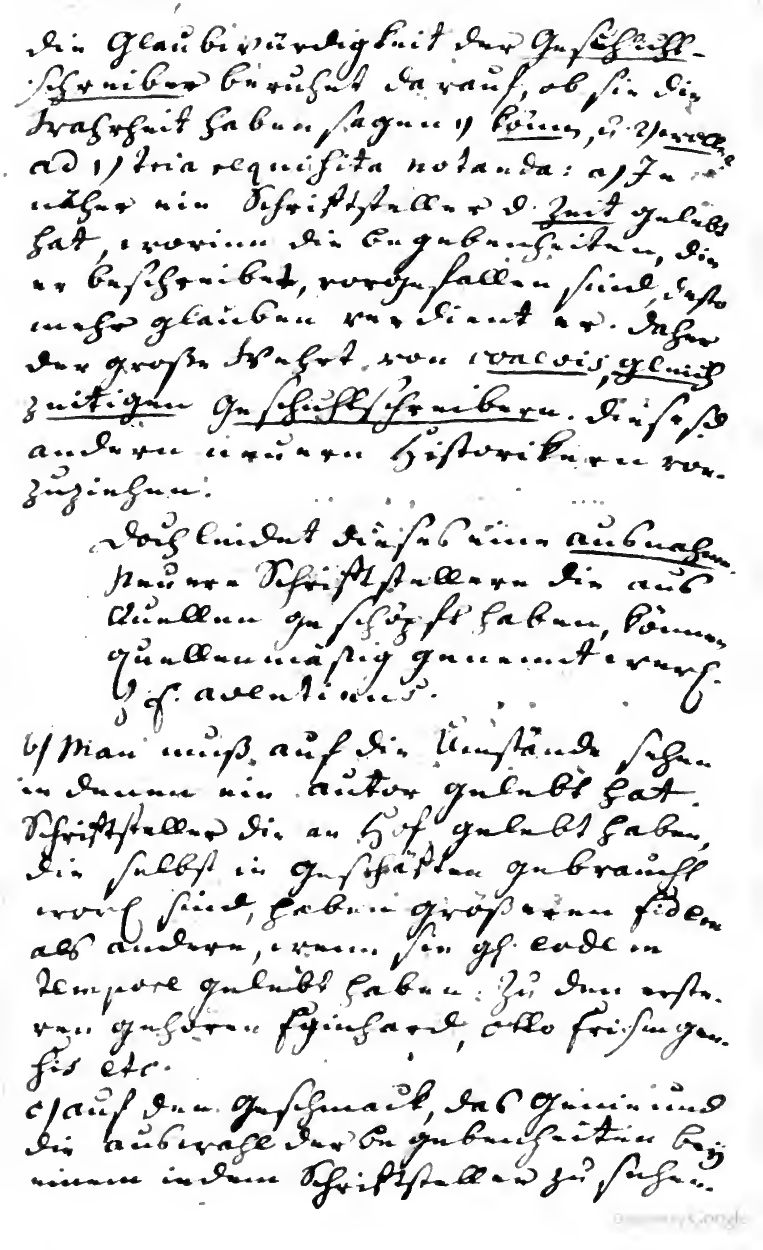 die Glaubwürdigkeit der Geschicht-
schreiber beruhet darauf, ob sie die
Wahrheit haben sagen 1) können, u. 2) wollen
ad 1) tria exquisita notanda: a) Je
näher ein Schriftsteller d. Zeit gelebt
hat, worinn die begebenheiten, die
er beschreibet, vorgefallen sind, desto
mehr glauben verdient er. daher
der große Wehrt von coaevis, gleich
zeitigen Geschichtschreibern. diese sind
andern neuern Historikern vor-
zuziehen.
doch leidet dieses eine ausnahme.
Neuere Schriftstellere die aus
Quellen geschöpft haben, können
quellenmäsig genennt werd.
z. E. aventinus.
b) Man muß auf die Umstände sehen
in denen ein autor gelebt hat.
Schriftsteller die am Hof gelebt haben,
die selbst in geschäften gebraucht
word sind, haben größeren fidem
als andere, wenn sie gl. eodem
tempore gelebt haben. Zu den erste-
ren gehören Eginhard, otto Frisingen-
sis etc.
c) auf den Geschmack, das Genie und
die auswahl der begebenheiten bey
einem iedem Schriftsteller zu sehen.
Google